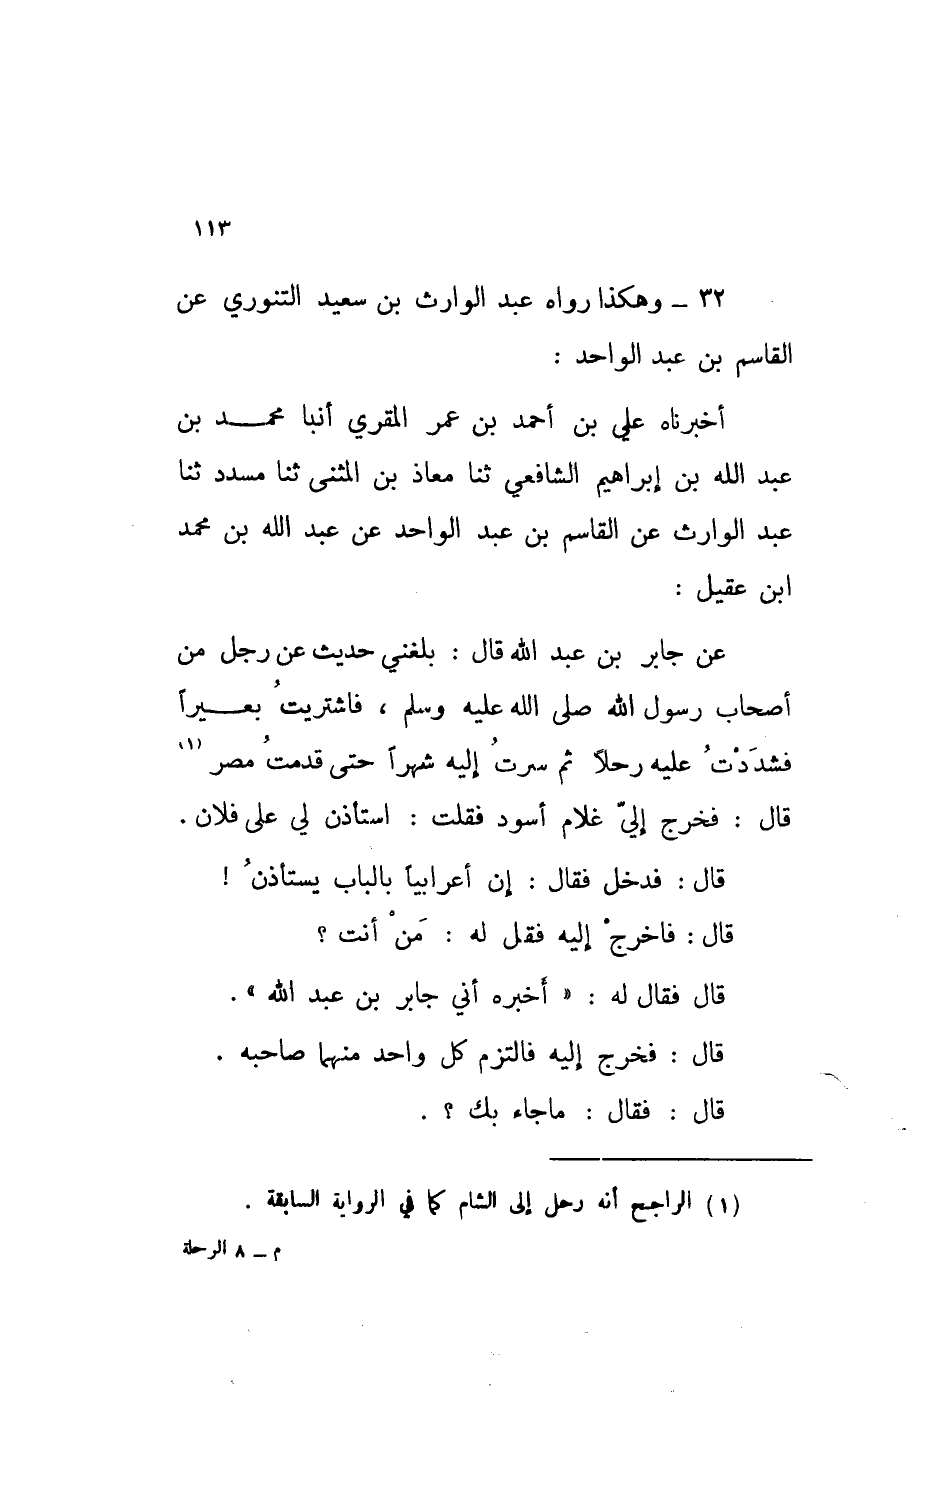 ١١٣
٣٢ – وهكذا رواه عبد الوارث بن سعيد التنوري عن
القاسم بن عبد الواحد :
أخبرناه علي بن أحمد بن عمر المقري أنبا محمـــد بن
عبد الله بن إبراهيم الشافعي ثنا معاذ بن المثنى ثنا مسدد ثنا
عبد الوارث عن القاسم بن عبد الواحد عن عبد الله بن محمد
ابن عقيل :
عن جابر بن عبد الله قال : بلغني حديث عن رجل من
أصحاب رسول الله صلى الله عليه وسلم ، فاشتريتُ بعـــيراً
فشدَدْتُ عليه رحلاً ثم سرتُ إليه شهراً حتى قدمتُ مصر (١)
قال : فخرج إليّ غلام أسود فقلت : استأذن لي على فلان .
قال : فدخل فقال : إن أعرابياً بالباب يستأذنُ !
قال : فاخرجْ إليه فقل له : مَنْ أنت ؟
قال فقال له : « أَخبره أني جابر بن عبد الله » .
قال : فخرج إليه فالتزم كل واحد منهما صاحبه .
قال : فقال : ماجاء بك ؟ .
(١) الراجح أنه رحل إلى الشام كما في الرواية السابقة .
م – ٨ الرحلة